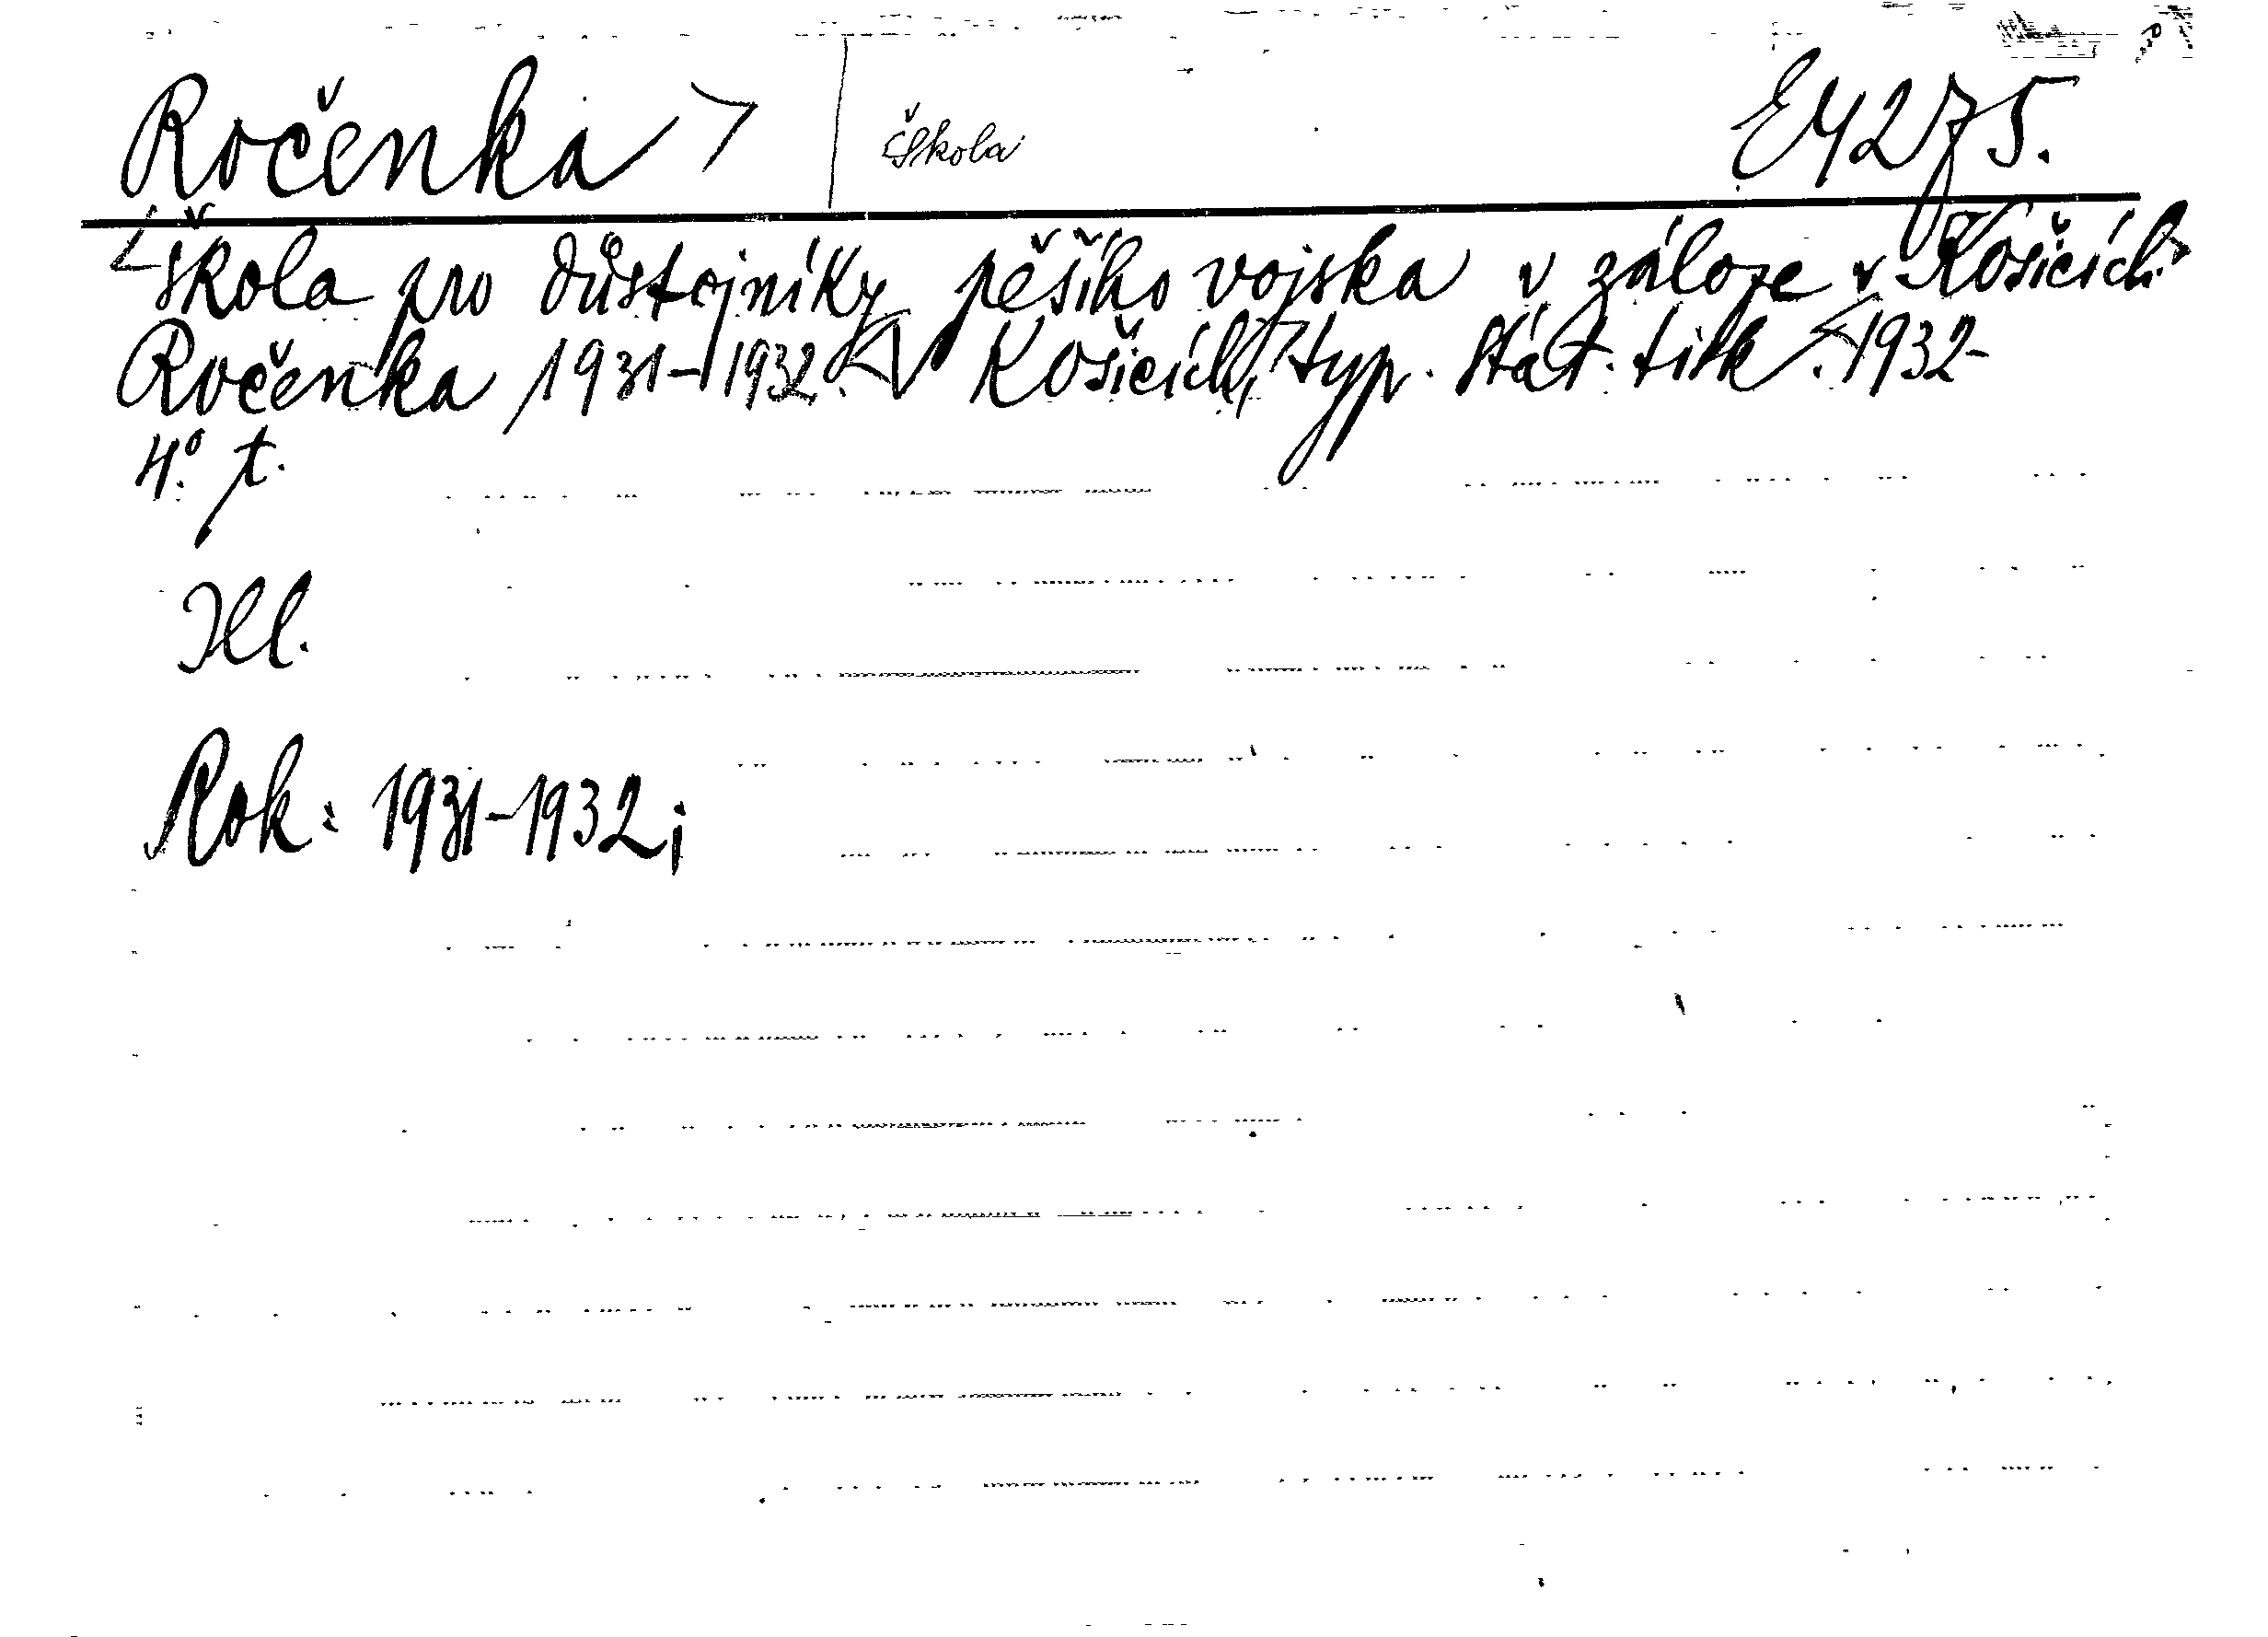 Ročenka > | škola E4275.
<Škola pro důstojníky pěšího vojska v záloze v Košicích.>
Ročenka 1931-1932. <V Košicích, typ. stát. tisk. <1932-
4.° f.
Ill.
Rok: 1931-1932;